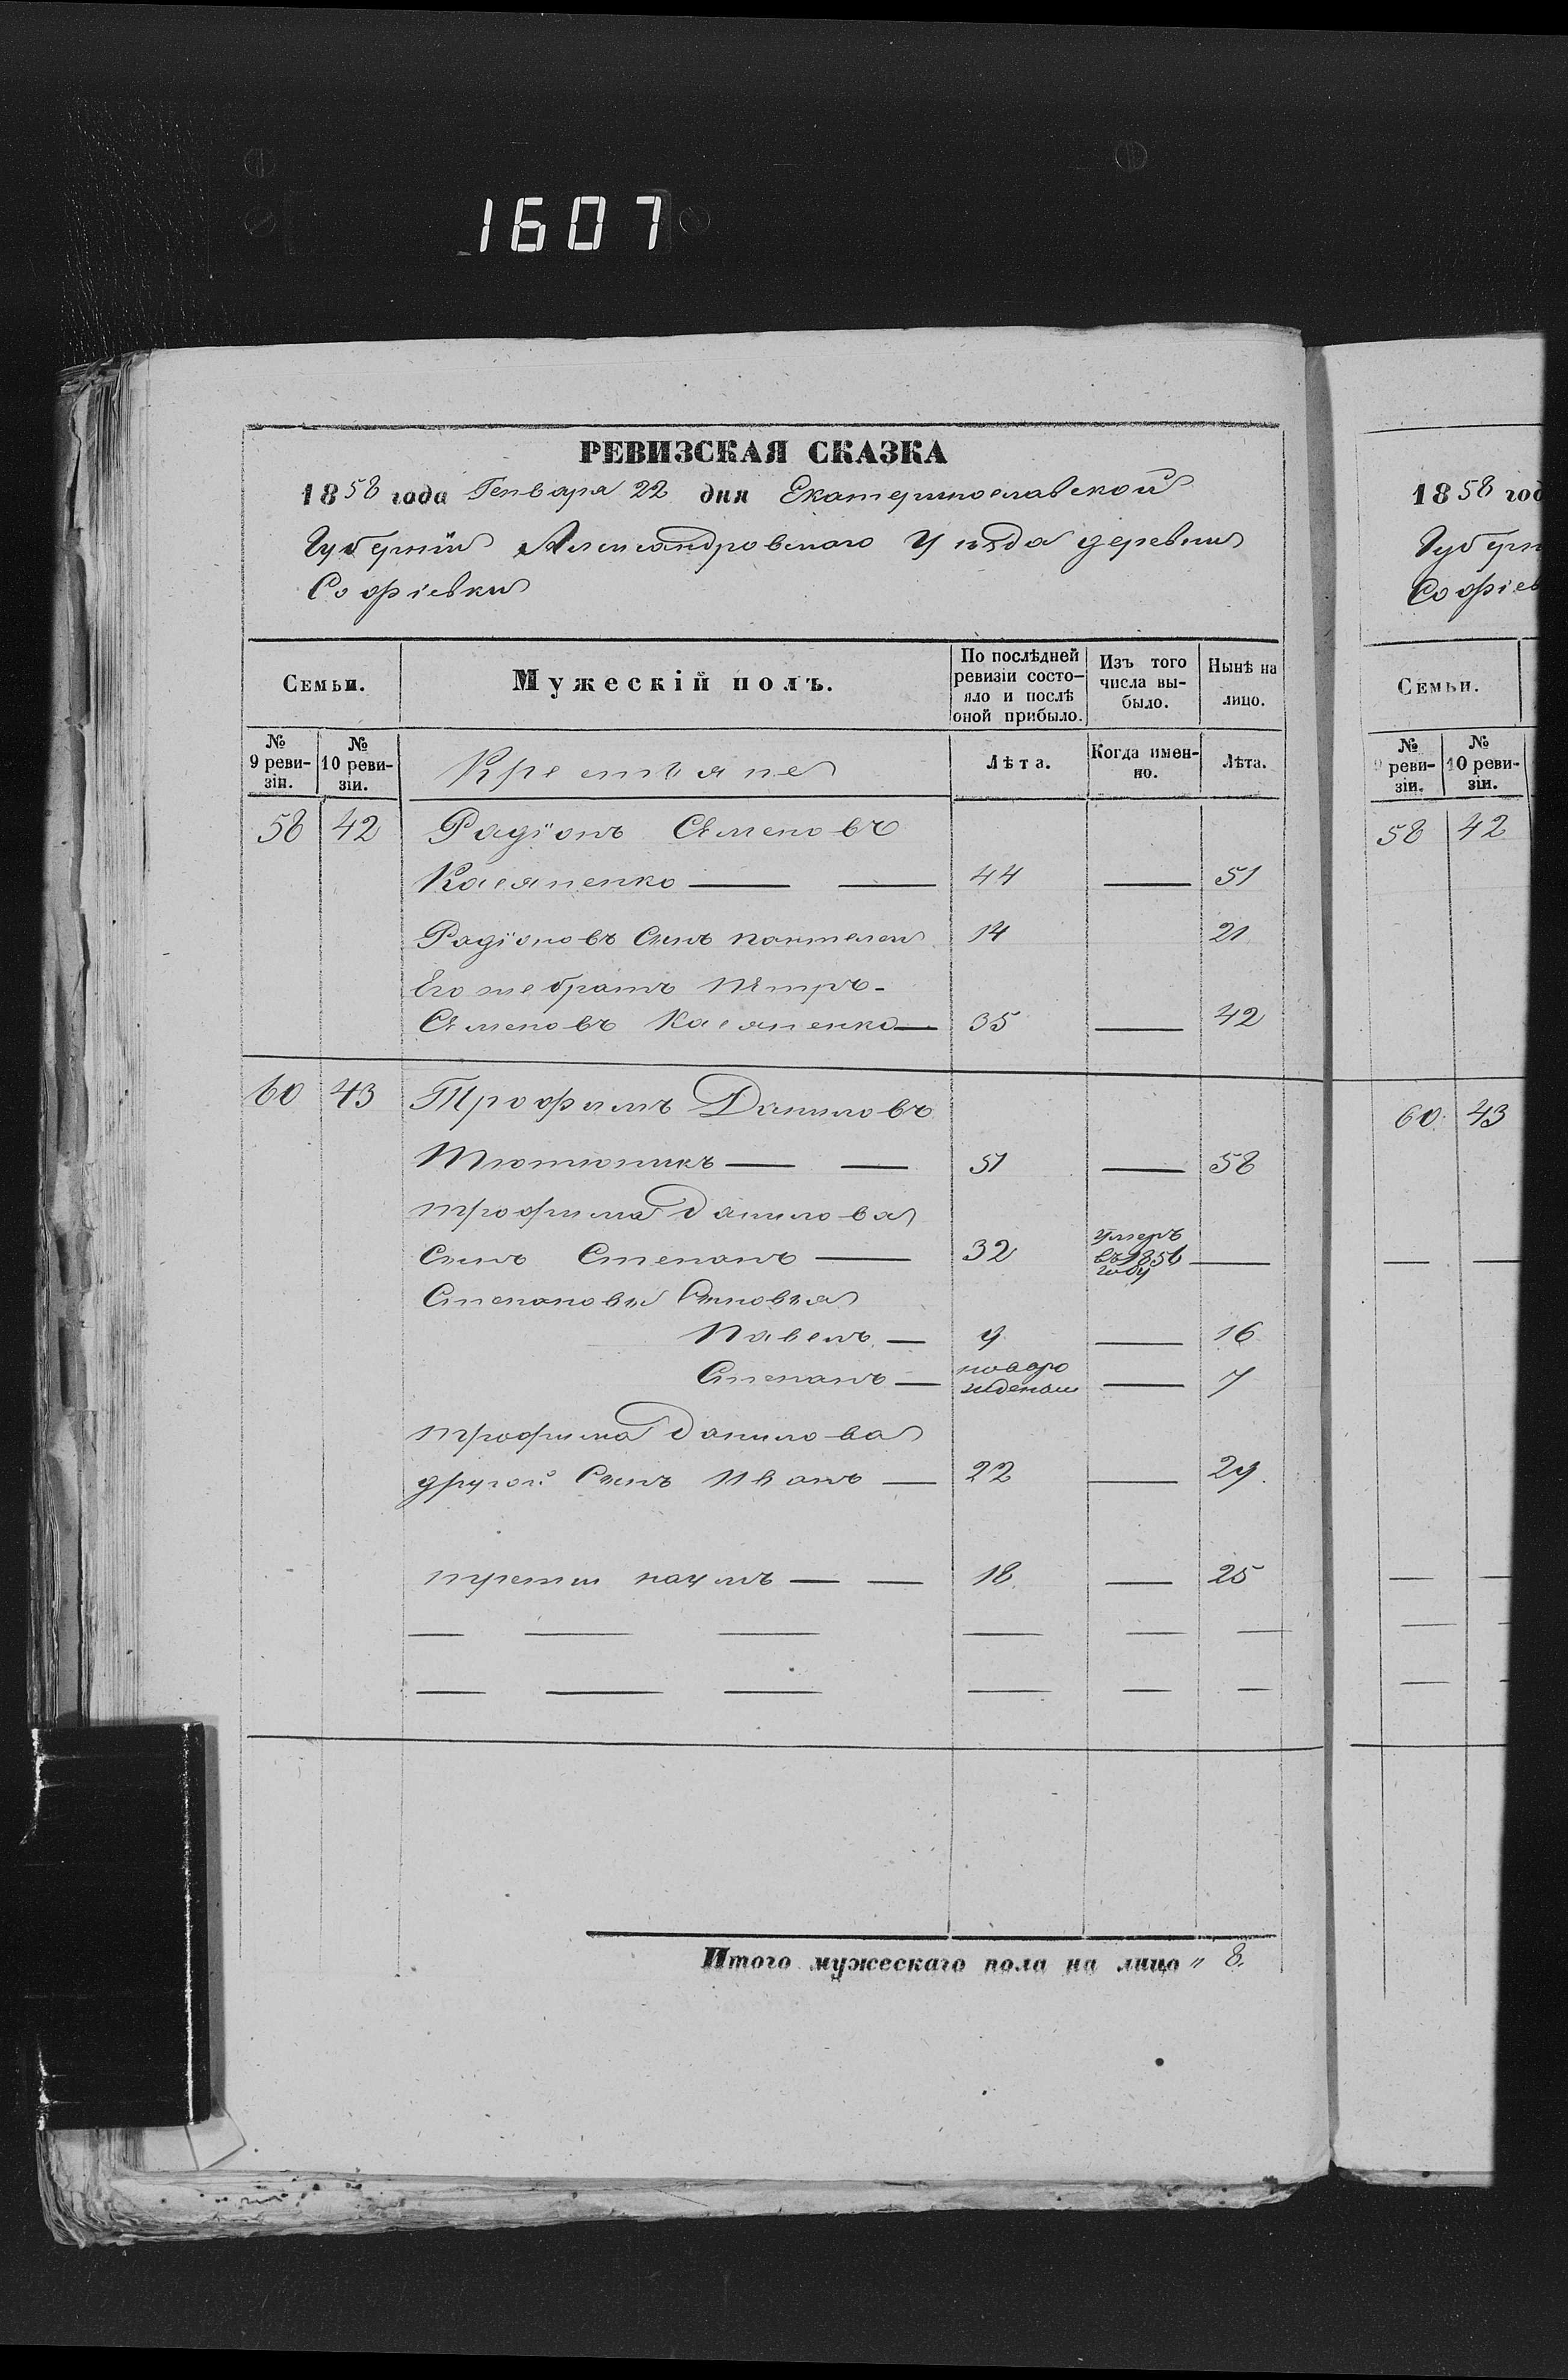 1607
РЕВИЗСКАЯ СКАЗКА
1858 года Генваря 22 дня Екатеринославской
Губернии Александровского Уѣзда деревни
Софіевки
Семьи. Мужескій полъ. По послѣдней ревизіи состояло и послѣ оной прибыло. Изъ того числа выбыло. Нынѣ на лицо.
№ 9 ревизіи. № 10 ревизіи. Крестьяне Лѣта. Когда именно. Лѣта.
58 42 Радіонъ Семеновъ
Касяненко — — 44 — 51
Радіоновъ Сынъ пантелей 14 21
Его же братъ Петръ-
Семеновъ Касяненко — 35 — 42
60 43 Трофимъ Даниловъ
Тютюникъ — — 51 — 58
трофима Данилова
Сынъ Степанъ — 32 умеръ въ 1856 году —
Степановы Сыновья
Павелъ — 9 — 16
Степанъ — новорожденой — 7
трофима Данилова
другой Сынъ Иванъ — 22 — 29.
третий наумъ — — 18. — 25
— — — — — —
— — — — — —
Итого мужескаго пола на лицо „ 8.
1858 год
Губерн
Софіев
Семьи.
№ 9 ревизіи. № 10 ревизіи.
58 42
60. 43